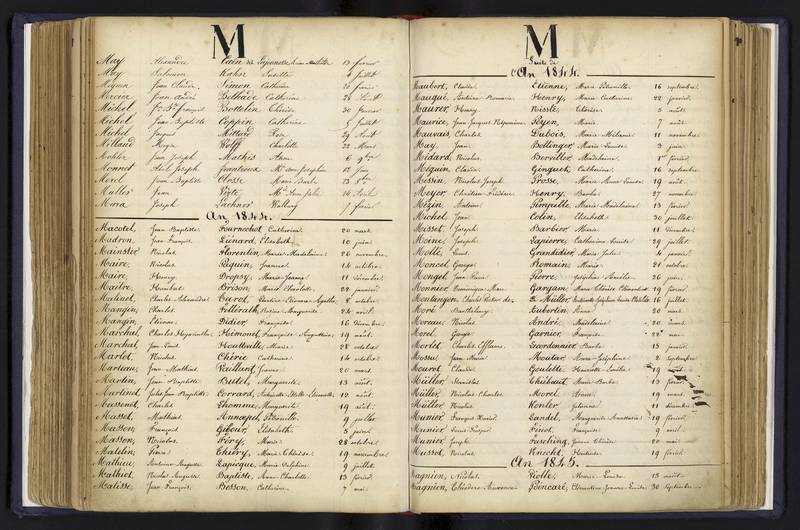 M
May Alexandre Caën 13 février
May Salomon Kahn Rosette 4 juillet
Mayeur Jean Claude Simon Catherine 20 février
Jean Louis Catherine
Michel Bottelin Thérèse 30 février
Michel Jean Baptiste Coppin Catherine 5 juillet
Michel Jacques Mittard Rose 29 août
Milliaud Meyer Wolff Charlotte 22 mars
Mohler Jean Joseph Mathis Anne 6 9bre
Monnet Abel Joseph 12 juin
Morel Jean Baptiste Closse Marie Barbe 23
Muller Jean 16 avril
Mura Joseph Lachner Walburg 7 février
An 1844.
Macotel, Jean Baptiste Fournechot, Catherine 20 mars
Madron, Jean François Liénard, Elisabeth 10 juin
Mainster Nicolas Florentin, Marie Madeleine 26 novembre
Maire, Nicolas Péquin, Jeanne 14 octobre
Maire, Henry Dropsy, Marie Jeanne 11 décembre
Maître, Humbert Brison, Marie Charlotte 22 janvier
Malinet, Charles Alexandre Curot, 8 octobre
Mangin, Charles Pellerath, Rosine Marguerite 24 avril
Mangin, Etienne Didier, Françoise 16 décembre
Marchal, Charles Hyacinthe Héimend, Françoise Augustine 19 août
Marchal, Jean Louis Houtteville, Marie 28 octobre
Marlot, Nicolas Chérie Catherine 14 octobre
Marteau, Jean Matthias Vaillant, Jeanne 20 mars
Martin, Jean Baptiste Butel, Marguerite 13 août
Martinet, Jules Jean Baptiste Cerrard, 12 août
Massenet, Charles Lhomme, Marguerite 19 août
Masset, Mathias Annequel, Pétronille 9 juillet
Masson, François Gibour, Elisabeth 3 juin
Masson, Nicolas Féry, Marie 28 octobre
Matelin, Pierre Thiéry, Marie Thérèse 19 novembre
Mathieu, Antoine Auguste Lapicque, Marie Delphine 9 juillet
Mathiot, Nicolas Auguste Baptiste, Anne Charlotte 13 février
Matisse, Jean François Besson, Catherine 7 mai
M
Suite de
l'An 1844.
Maubert, Claude Etienne, Marie Pétronille 16 septembre
Mauqué, Antoine Romain Henry, Marie Catherine 22 janvier
Maurer, Henry Noisette, Victoire 5 août
Maurice, Jean Jacques Népomucène Péyen, Marie 7 août
Mauvais, Charles Dubois, Marie Mélanie 11 novembre
May, Jean Bettinger, Marie Louise 3 juin
Médard, Nicolas Berviller, Madeleine 1er février
Méguin, Claude Ginguet, Catherine 16 septembre
Messin, Nicolas Joseph Prosse, Marie Anne Louise 19 août
Meyer, Chrétien Frédéric Henry, Barbe 27 novembre
Mézin, Antoine Pimpelle, Marie Madeleine 13 février
Michel, Jean Colin, Elisabeth 30 juillet
Misset, Joseph Barbier, Marie 11 décembre
Moine, Joseph Lapierre, Catherine Louise 29 juillet
Molte, Louis Grandidier, Marie Julie 4 janvier
Moncel, Georges Romain, Marie 21 octobre
Mongel, Jean Louis Pierre, Joséphine Amélie 26 octobre
Monnier, Dominique Marc Gargam, Marie Elmire Clémentine 19 février
Montangon, Charles Victor de De Müller, 16 juillet
Moré Barthélemy Aubertin, Anne 20 mars
Moreau, Nicolas André, Madeleine 20 août
Morel, George Garnier, Anne 22 mai
Morlet, Charles Affilaire Cordonnier, Barbe 15 janvier
Mossu, Jean Marie Moutar, Marie Joséphine 2 septembre
Mourot, Claude Goulette, Henriette Emilie 19 août
Müller, Stanislas Thiébaut, Marie Barbe 13 février
Müller, Nicolas Charles Morel, Anne 19 mars
Müller, Nicolas Kenler, Julienne 21 décembre
Munier, François Xavier Landel, Marguerite Anastasie 19 février
Munier, Louis Prosper Pinot, Françoise 9 avril
Munier, Joseph Fasching, Jeanne Claude 20 mai
Mussot, Nicolas Knecht, 19 février
An 1845.
Magnien, Nicolas Piotte, Marie Louise 13 août
Magnien, Théodore Auxence Poincaré, Clémentine Jeanne Louise 30 septembre